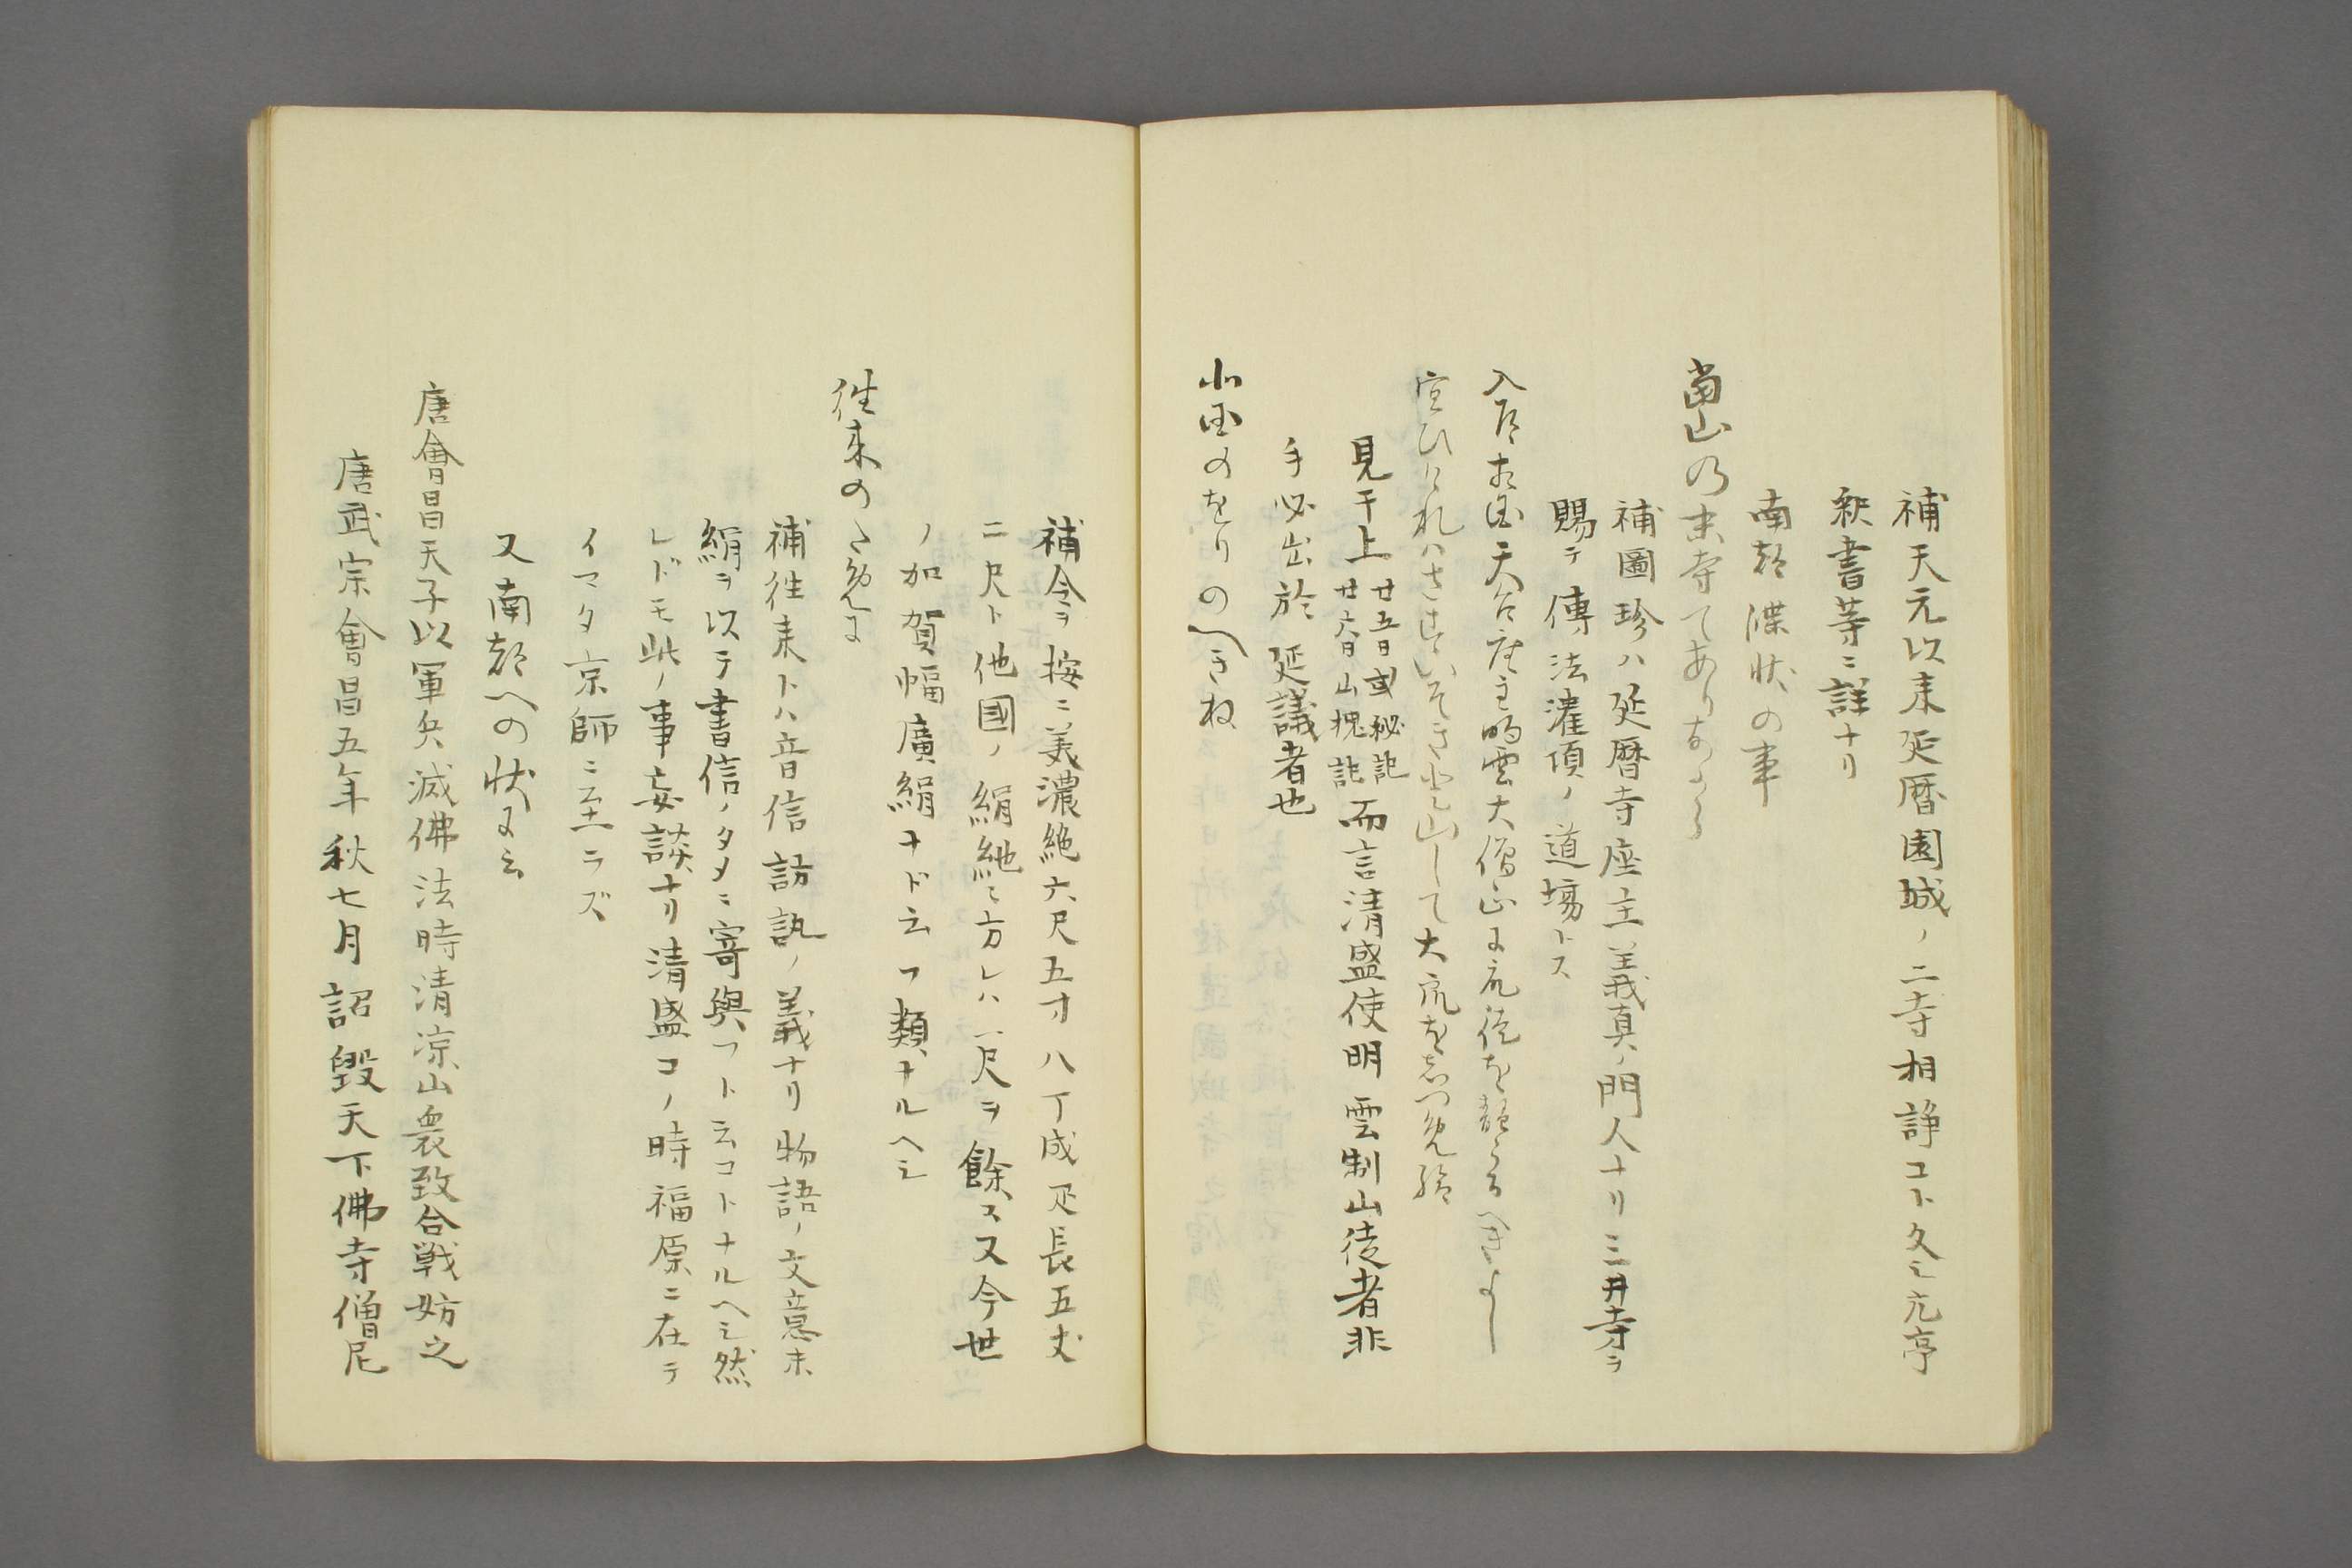 補天元以来延暦園城ノ二寺相諍コト久シ元亨
釈書等ニ詳ナリ
南都牒状の事
当山の末寺てありなから
補圓珍ハ延暦寺座主義真ノ門人ナリ三井寺ヲ
賜テ傳法灌頂ノ道場トス
入道相国天台座主明雲大僧正に衆徒を静らるへきよし
宣ひけれハさすいそき登山して大衆をしつめ給
見于上廿五日或秘記
廿六日山槐記而言清盛使明雲制山徒者非
乎必出於延議者也
北国のをりのへきね
補今ヲ按ニ美濃絁六尺五寸八丁成疋長五丈
二尺ト他國ノ絹絁ニ方レハ一尺ヲ餘ス又今世
ノ加賀幅廣絹ナド云フ類ナルヘシ
往来のために
補往来トハ音信訪訊ノ義ナリ物語ノ文意ハ
絹ヲ以テ書信ノタメニ寄與フト云コトナルヘシ然
レドモ此ノ事妄談ナリ清盛コノ時福原ニ在テ
イマタ京師ニ至ラズ
又南都への状に云
唐會昌天子以軍兵滅佛法時清涼山衆致合戦妨之
唐武宗會昌五年秋七月詔毀天下佛寺僧尼